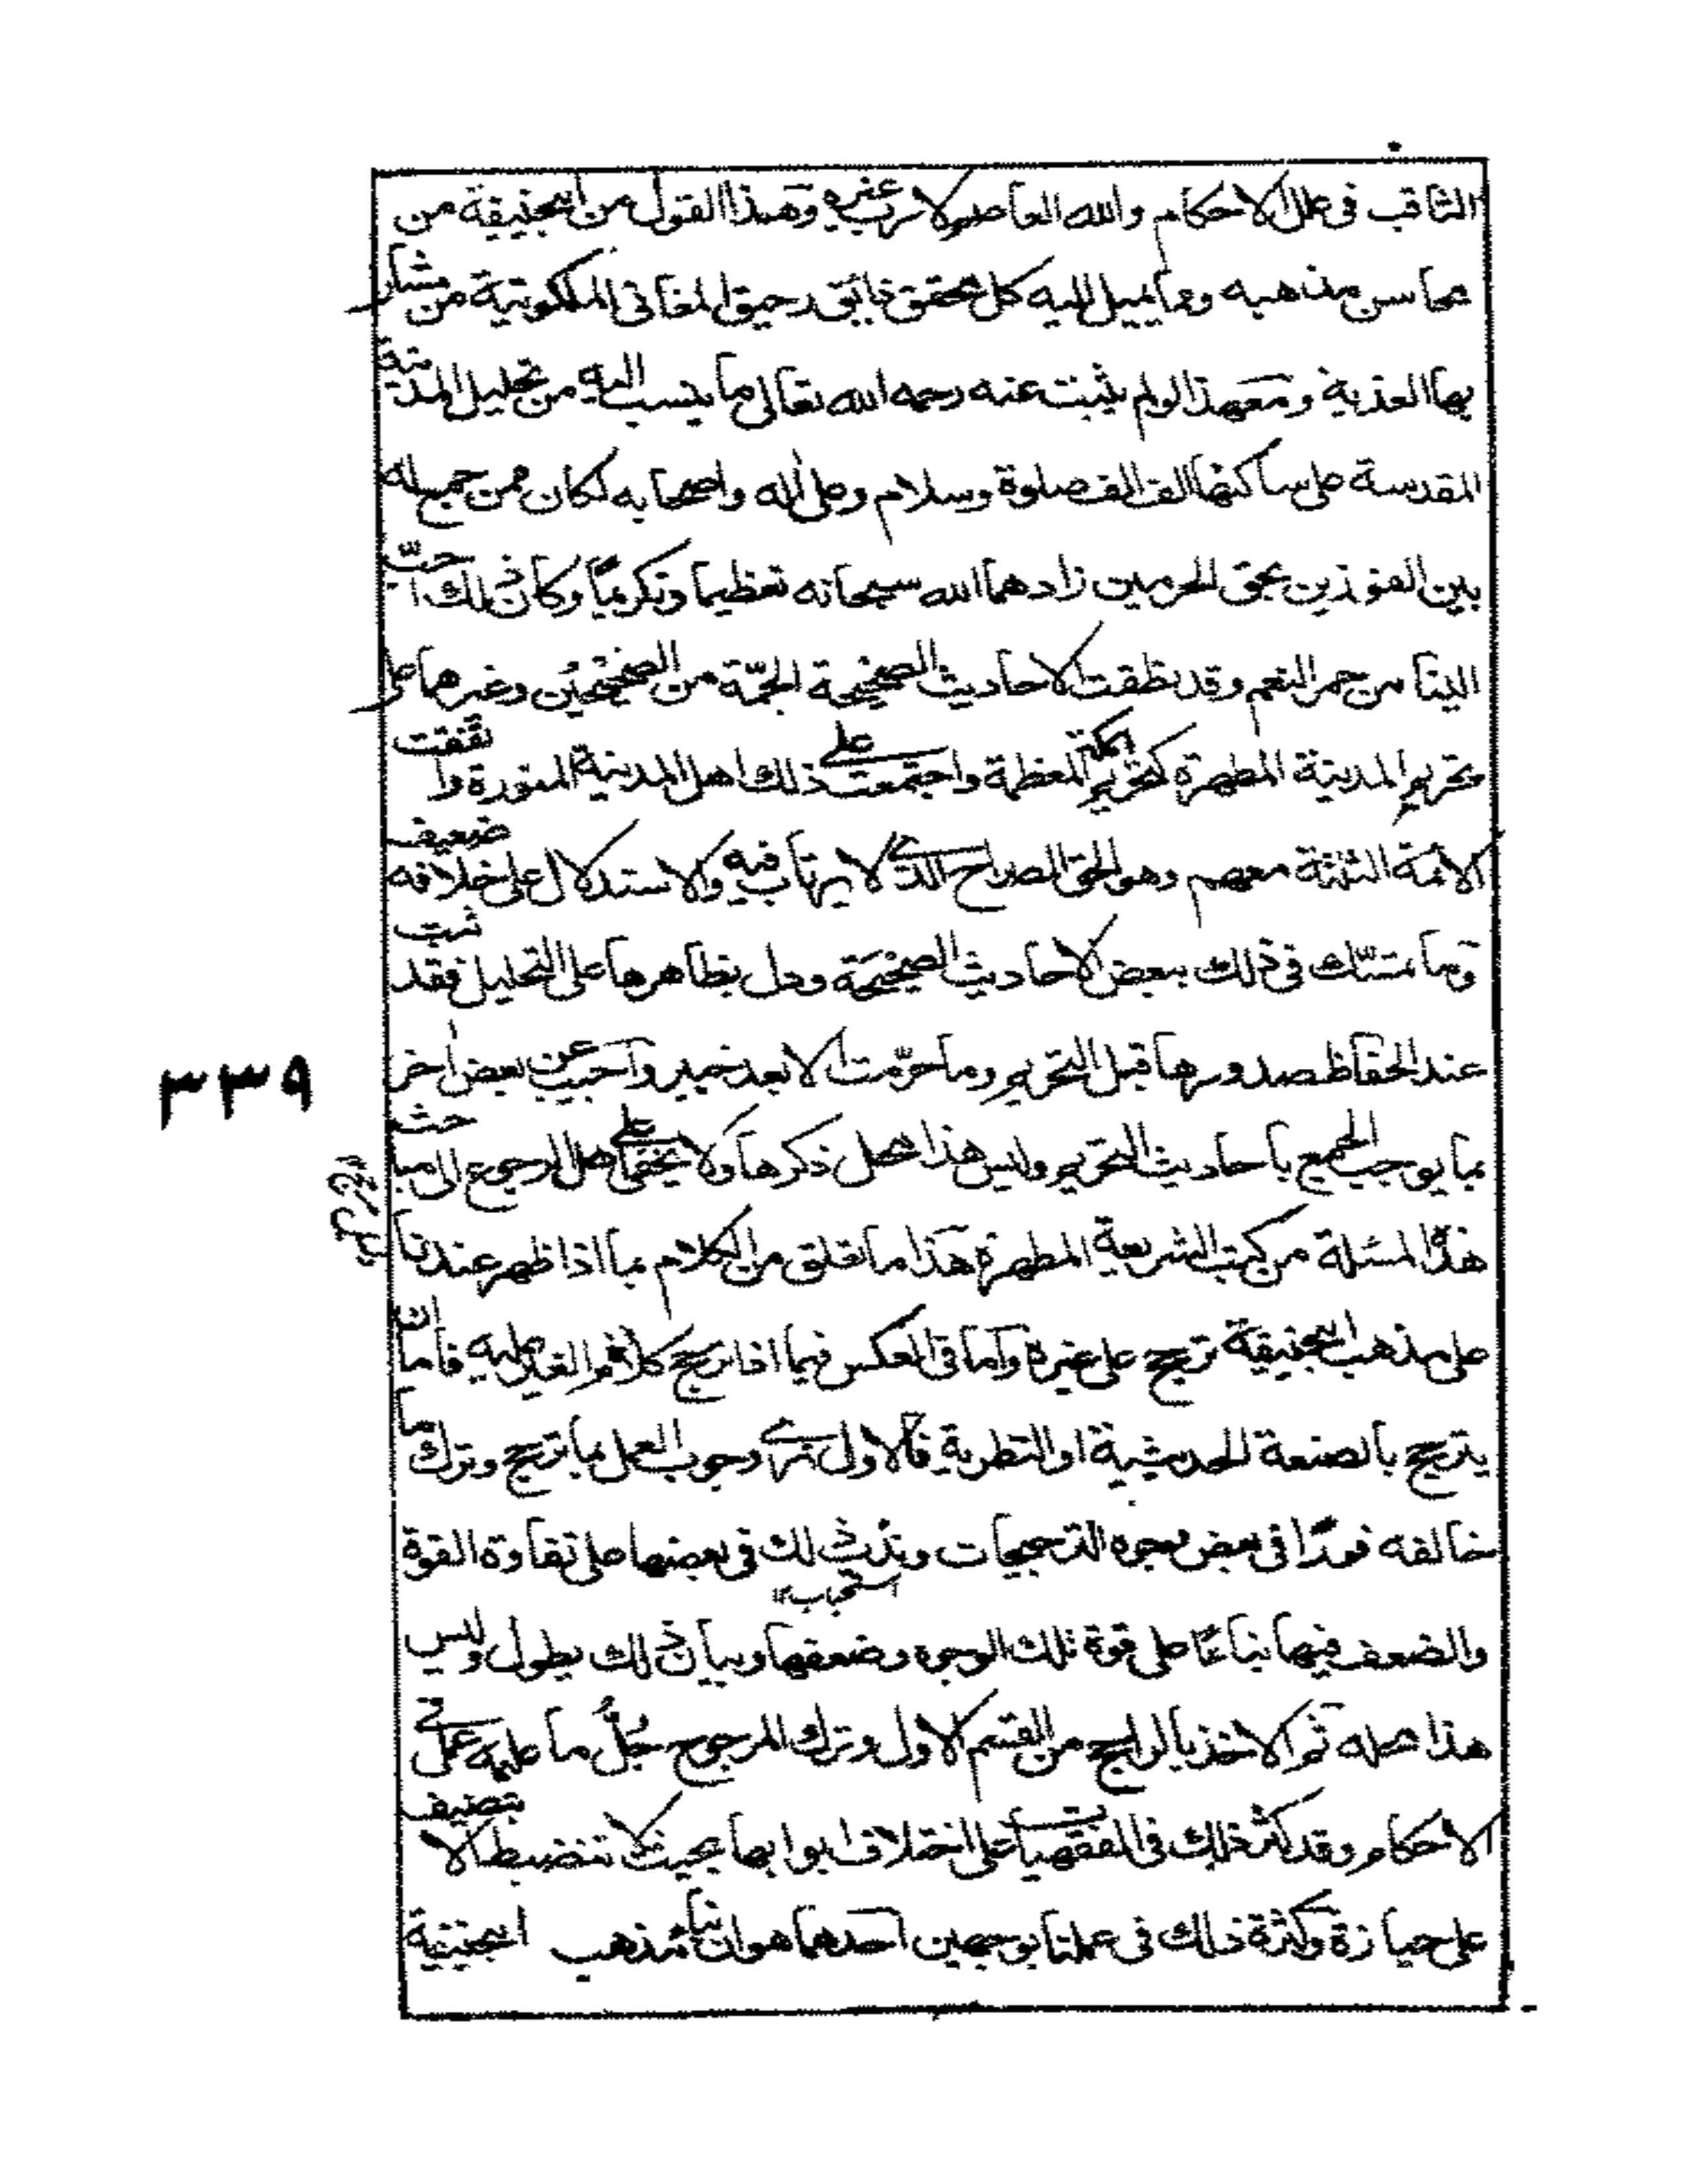 الثاقب فى علل الاحكام والله العاصم لا رب غيره وهذا القول من ابيحنيفة من
محاسن مذهبه ومما يميل اليه كل محقق ذائق رحيق المعانى الملكوتية من مشار
بها العذبة ومع هذا لو لم يثبت عنه رحمه الله تعالى ما ينسب اليه من تحليل المدينة
المقدسة على ساكنها الف الف صلوة وسلام وعلى اله واصحابه لكان ممن جمع له
بين الفوزين بحق الحرمين زادهما الله سبحانه تعظيما وتكريماً وكان ذلك احبّ
الينا من حمر النعم وقد نطقت الاحاديث الصحيحة الجمّة من الصحيحين وغيرهما على
تحريم المدينة المطهرة كتحريم مكة المعظمة واجتمعت على ذلك اهل المدينة المنورة واتفقت
الائمة الثلثة معهم وهو الحق الصراح الذى لا يرتاب فيه والاستدلال على خلافه ضعيف
وما تمسّك فى ذلك ببعض الاحاديث الصحيحة ودل بظاهرها على التحليل فقد ثبت
عند الحفاظ صدورها قبل التحريم وما حرّمت الا بعد خيبر واجيب عن بعض اخر
بما يوجب الجمع باحاديث التحريم وليس هذا محل ذكرها ولا يخفى على اهل الرجوع الى مباحث
هذه المسئلة من كتب الشريعة المطهرة هذا ما تعلق من الكلام بما اذا ظهر عندنا
على مذهب ابيحنيفة ترجيح على غيره واما فى العكس فيما اذا ترجح كلام الغير عليه فاما ان
يترجح بالصنعة الحديثية او النظرية فالاول نرى وجوب العمل بما ترجح وترك ما
خالفه فورًا فى بعض وجوه الترجيحات وندب ذلك فى بعضها على تفاوة القوة
استحباب
والضعف فيها بناءً على قوة تلك الوجوه وضعفها وبيان ذلك يطول وليس
هذا محله ثم الاخذ بالراجح من القسم الاول وترك المرجوح جُلُّ ما عليه عملى فى
الاحكام وقد كثر ذلك فى الفقهيات على اختلاف ابوابها بحيث لا تنضبط الا بتصنيف
على حيازة وكثرة ذلك فى عملنا بوجهين احدهما هو ان بناء مذهب ابيحنيفة
٣٣٩